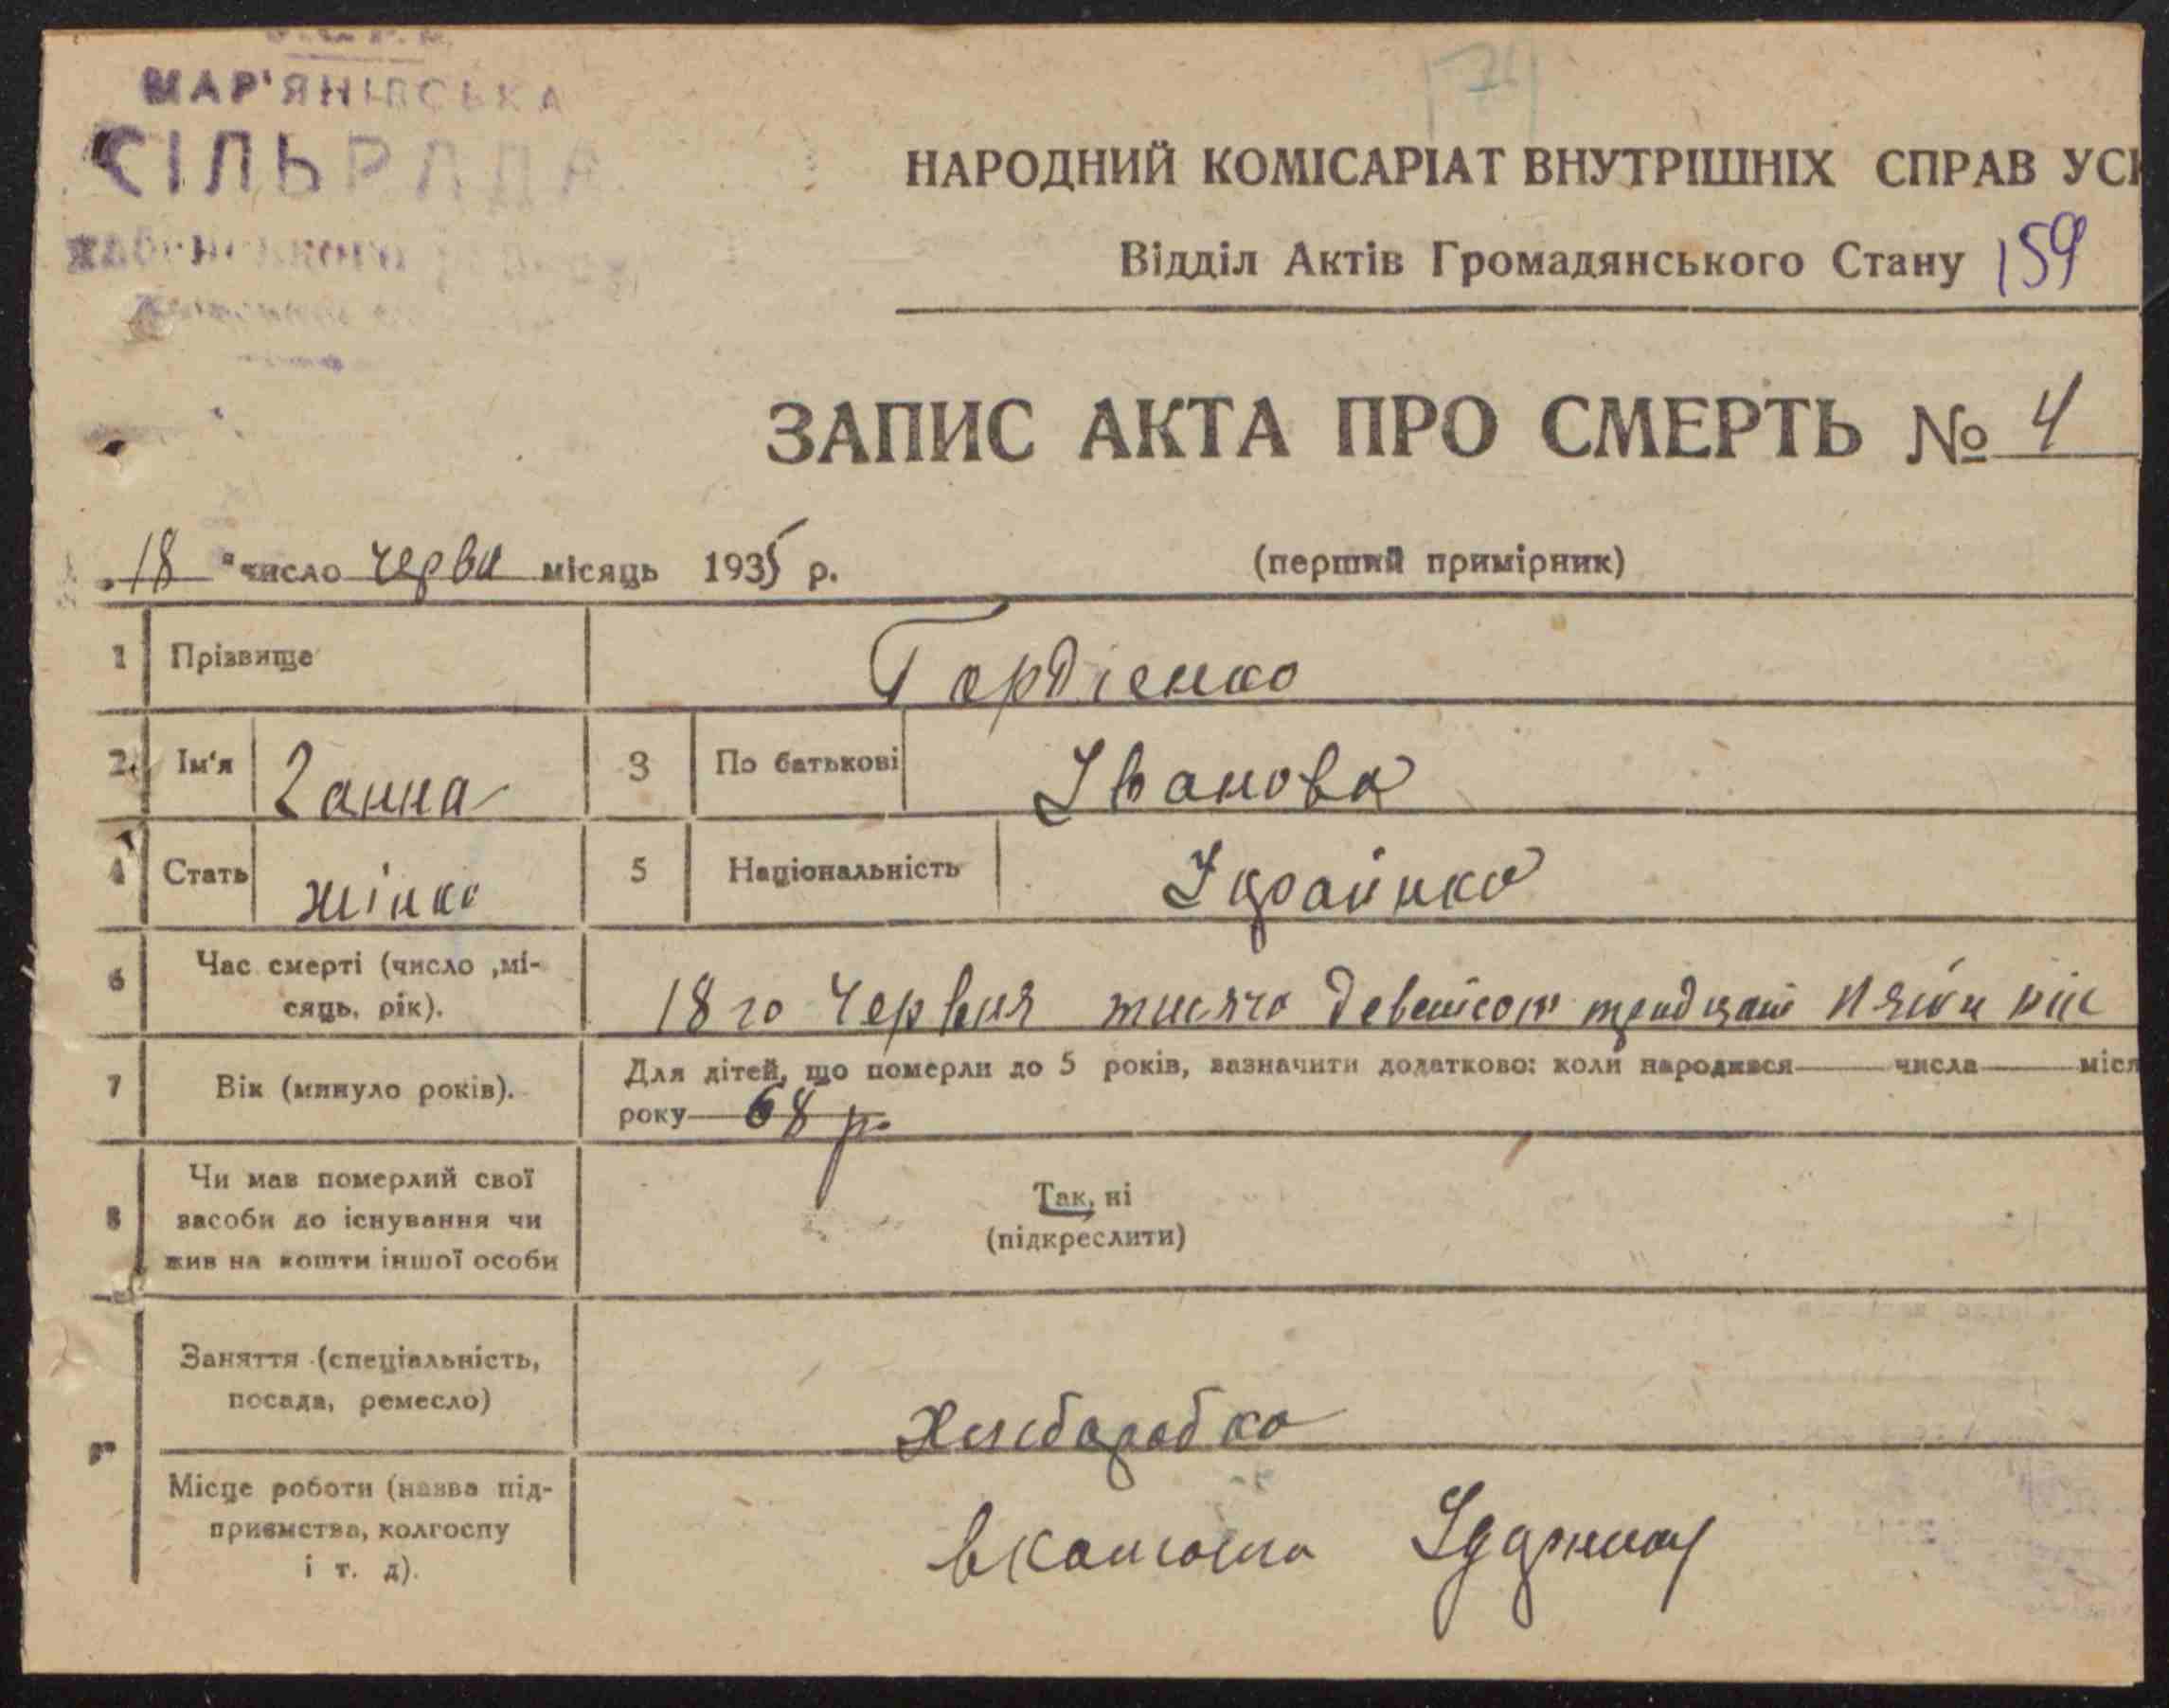 МАР'ЯНІВСЬКА
СІЛЬРАДА
74
НАРОДНИЙ КОМІСАРІАТ ВНУТРІШНІХ СПРАВ УС
Відділ Актів Громадянського Стану 159
ЗАПИС АКТА ПРО СМЕРТЬ № 4
"18" число червн місяць 1935 р. (перший примірник)
1 Прізвище Гордіенко
2. Ім'я Ганна 3 По батькові Іванова
4 Стать жінка 5 Національність Українка
6 Час смерті (число ,мі-
сяць, рік).
18 го Червня тисяча девятсот тридцать пятий рік
7 Вік (минуло років). Для дітей, що померли до 5 років, зазначити додатково: коли народився числа міся
року 68 р.
8 Чи мав померлий свої
засоби до існування чи
жив на кошти іншої особи
Так, ні
(підкреслити)
9 Заняття (спеціальність,
посада, ремесло)
Хлібаробка
Місце роботи (назва під-
приємства, колгоспу
і т. д).